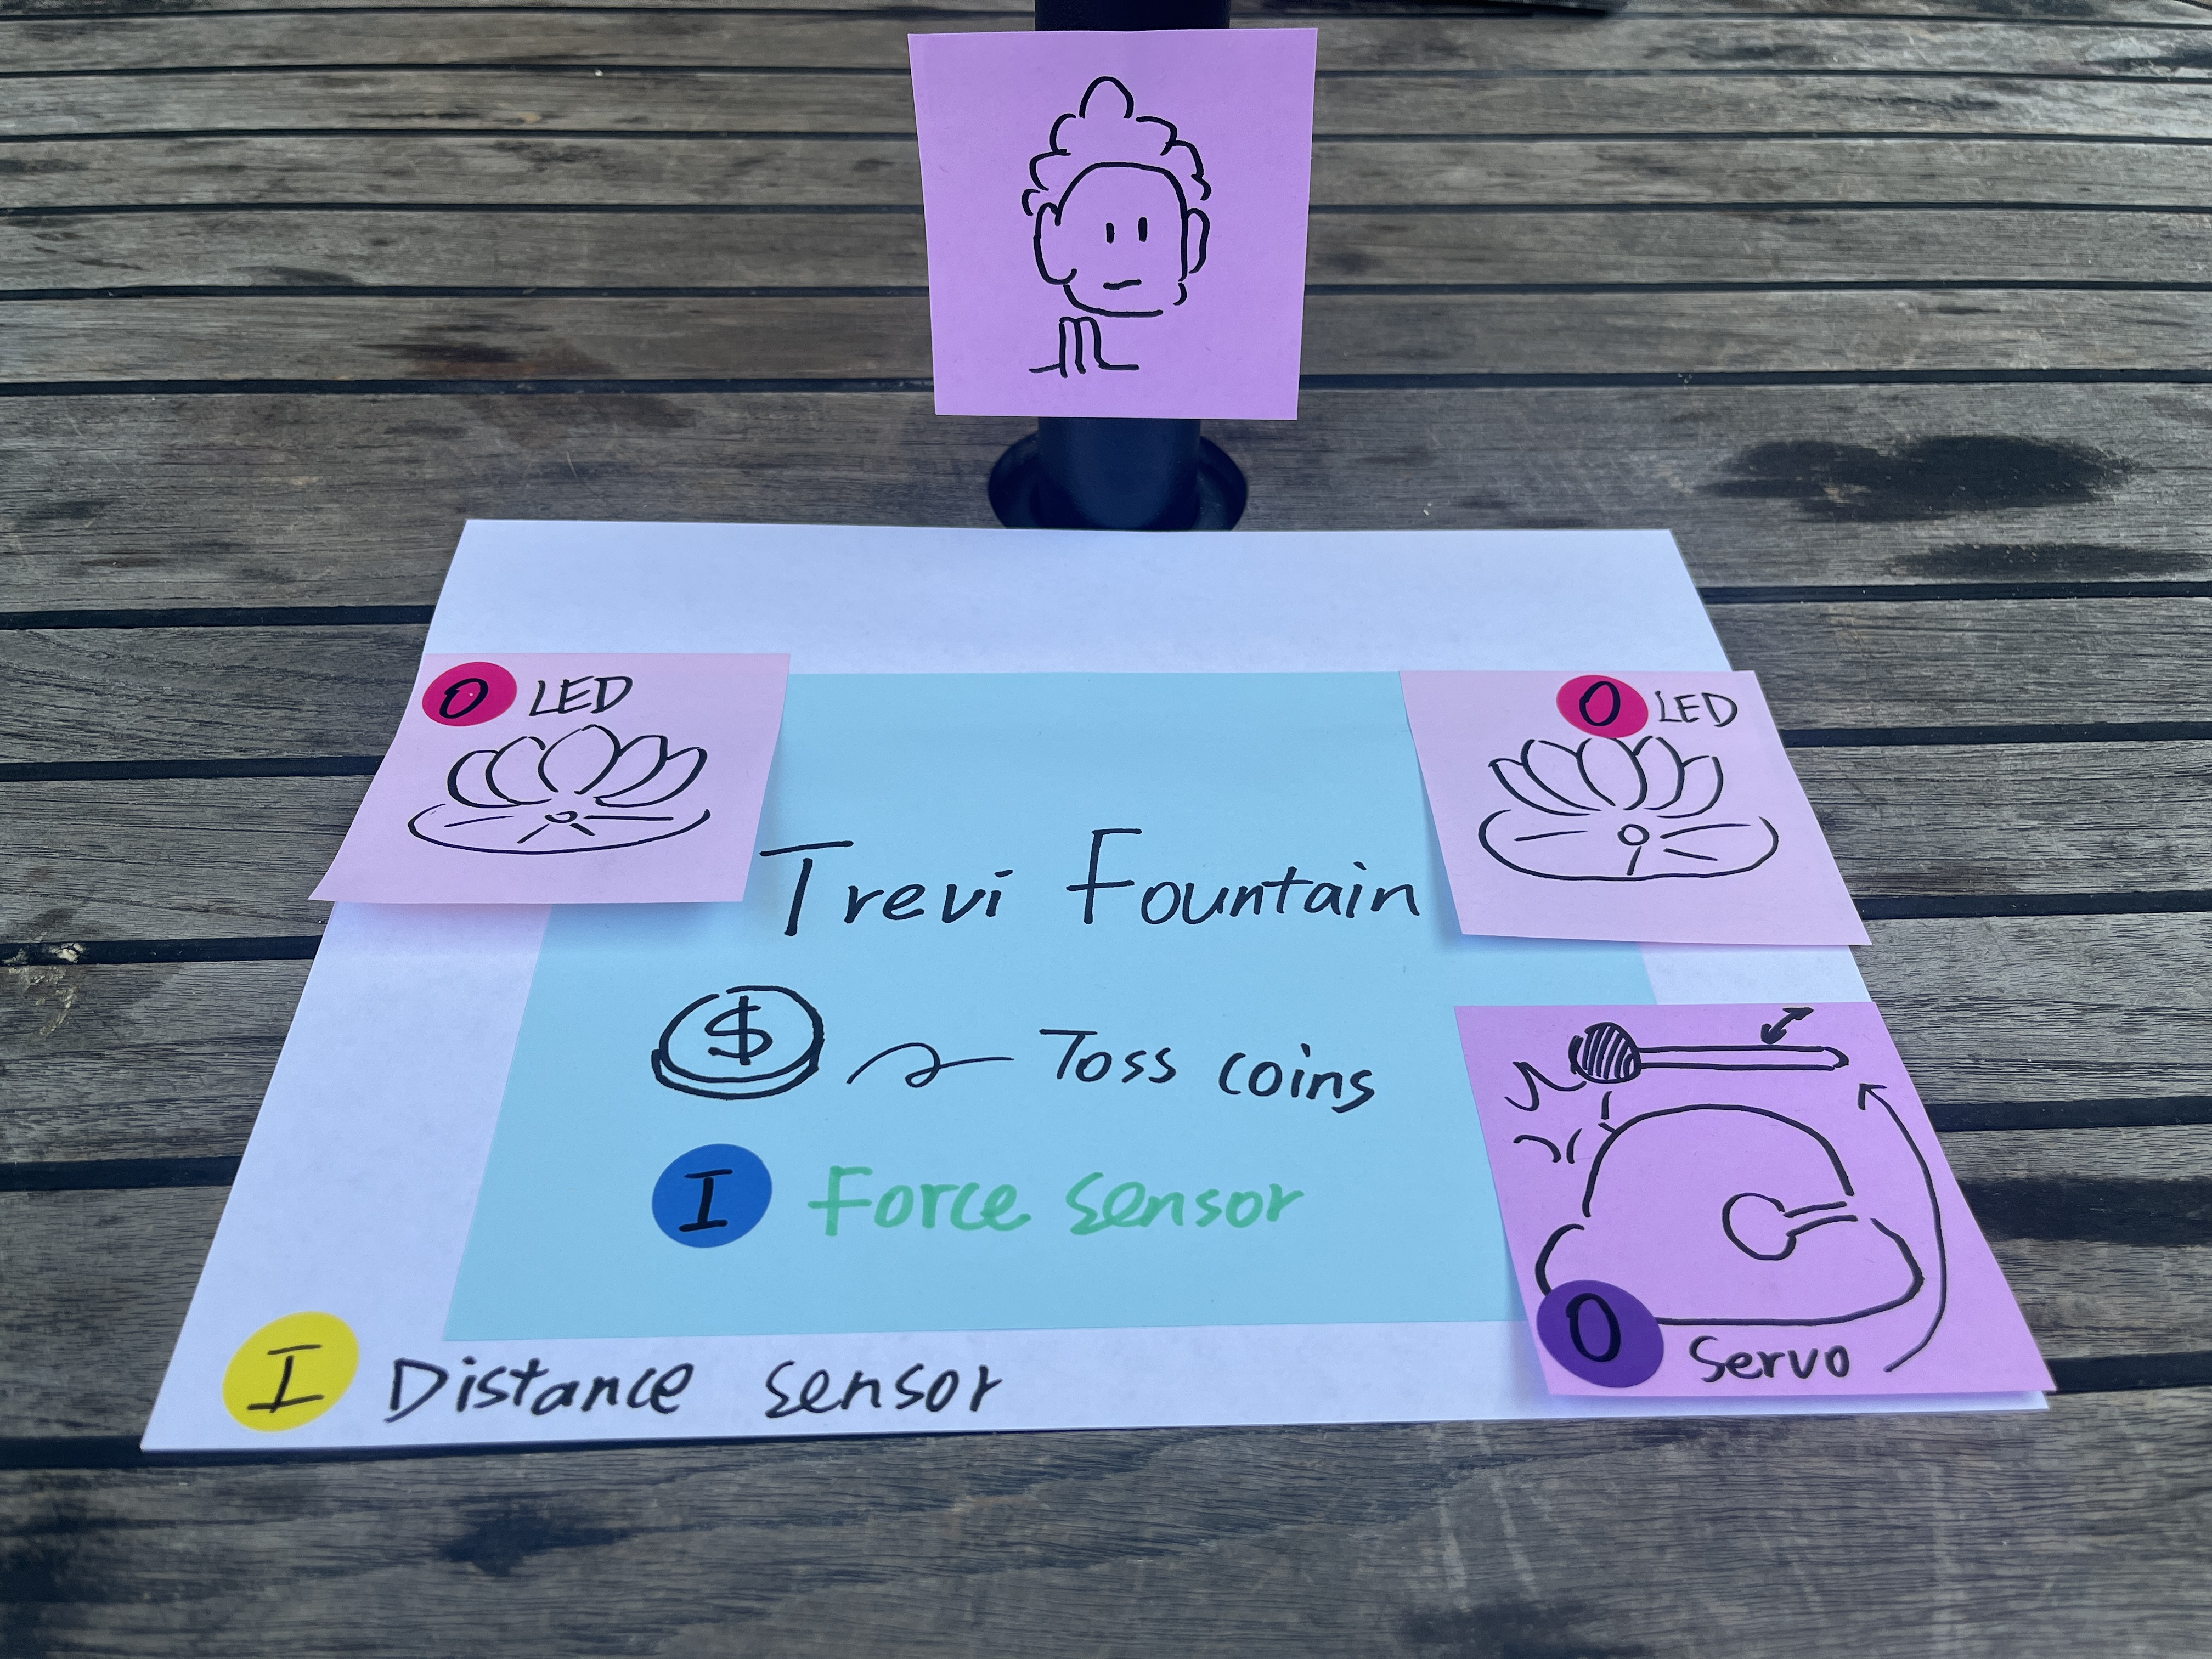 O LED
O LED
Trevi Fountain
$
Toss coins
I Force sensor
O Servo
I Distance sensor